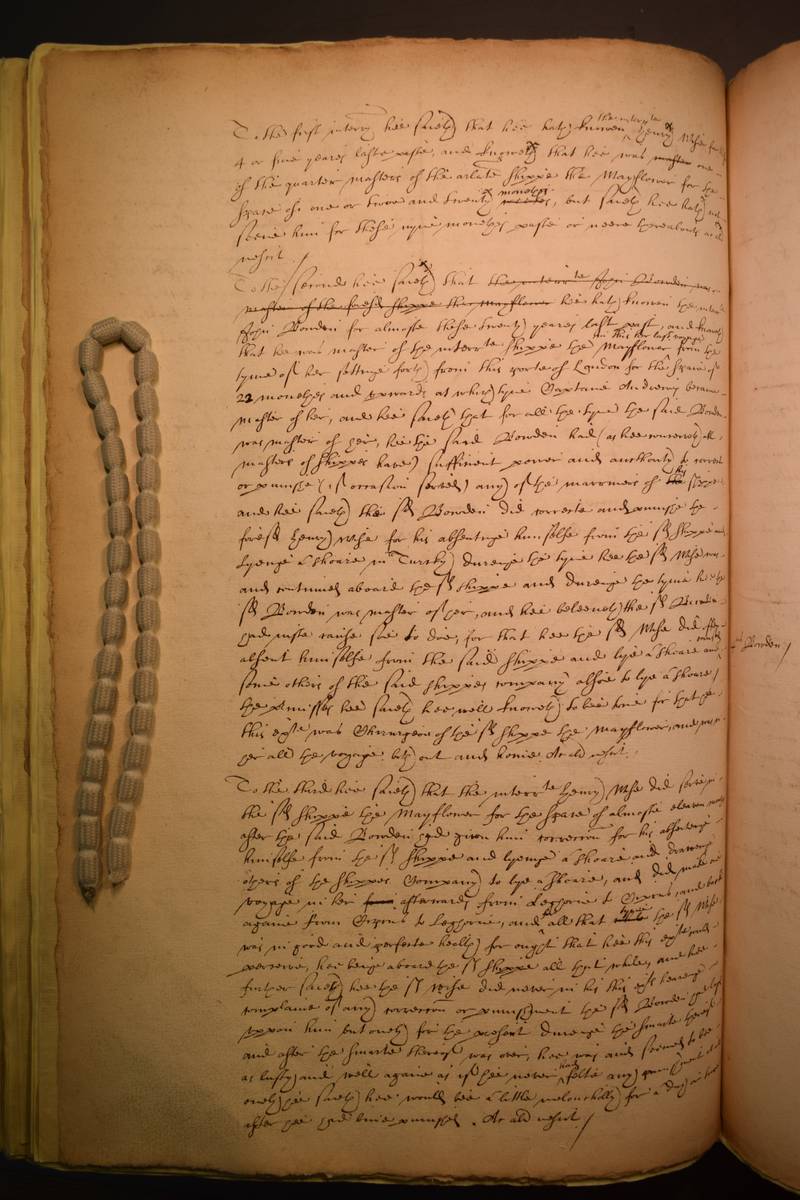 To the first interr hee saieth that hee hath knowen the interrate Henry Wise for
4 or five yeares laste paste, and knoweth that hee was master one
of the quarter masters of the arlate shippe the Mayflower for the
space of one or twoe and twenty weekes monethes, but saieth hee hath not
seene him for these nyne monethes paste or neere thereabouts et al
nescit /
To the second hee saieth that the interrate John Bowden was
master of the saied shippe the Mayflower hee hath knowen the interrate
John Bowden for almoste these twenty yeares last past, and knoweth
that hee was master of the interrate shippe the Mayflower in this her last voyage from the
tyme of her settinge forth from this porte of London for the space of
22 monethes and upwards at which tyme Captaine Andrewy became
master of her, and hee saieth that for all the tyme the said Bowden
was master of her, hee the said Bowden had (as hee conceiveth all
masters of shippes have) sufficient power and authority to correct
or punishe (if occasion served) any of the marriners of the his shippe
and hee saieth the sd Bowden did correcte and punishe the
foresd Henry Wise for his absentinge himselfe from the sd shippe and
lyenge a shoare in Turky duringe the tyme hee the sd Wise was
and continued aboard the sd shippe and duringe the tyme hee the
sd Bowden was master of her, and hee beleeveth the sd Bowden
had juste cause soe to doe, for that hee the sd Wise did often
absent himselfe from the said shippe and lye a shoare and
some others of the said shippes company alsoe to lye a shoare /
the premisses hee saieth hee well knoweth to bee true for that hee
this exte was Chirurgeon of the sd shippe the Mayflower, and in
her all the voyage both out and home. Et al nescit.
Bowden /
To the third hee saieth that the interrate Henry Wise did serve in
the sd shippe the Mayflower for the space of almoste eleven moneths
after the said Bowden had given him correccon for his absentinge
himselfe from the sd shippe and lyenge a shoare and drawinge
others of the shippes Company to lye a shoare, and did make one
voyage in her from afterwards from Legorne to Cyprus, and back
againe from Cyprus to Leghorne, and all that tyme the sd Wise
was in good and perfecte health for ought that hee this exte could
perceive, hee beinge aboard the sd shippe all that while, and hee
further saieth hee the sd Wise did never in his this exts hearinge
complaine of any correccon or punishment the sd Bowden
uppon him but onely for the present duringe the smarte thereof
and after the smarte thereof was over, hee was and seemed to be
as lusty and well againe as if hee never had felte any punishment
onely hee saieth hee would bee a little melancholly for a day or two
after hee had bene punished. Et al nescit /